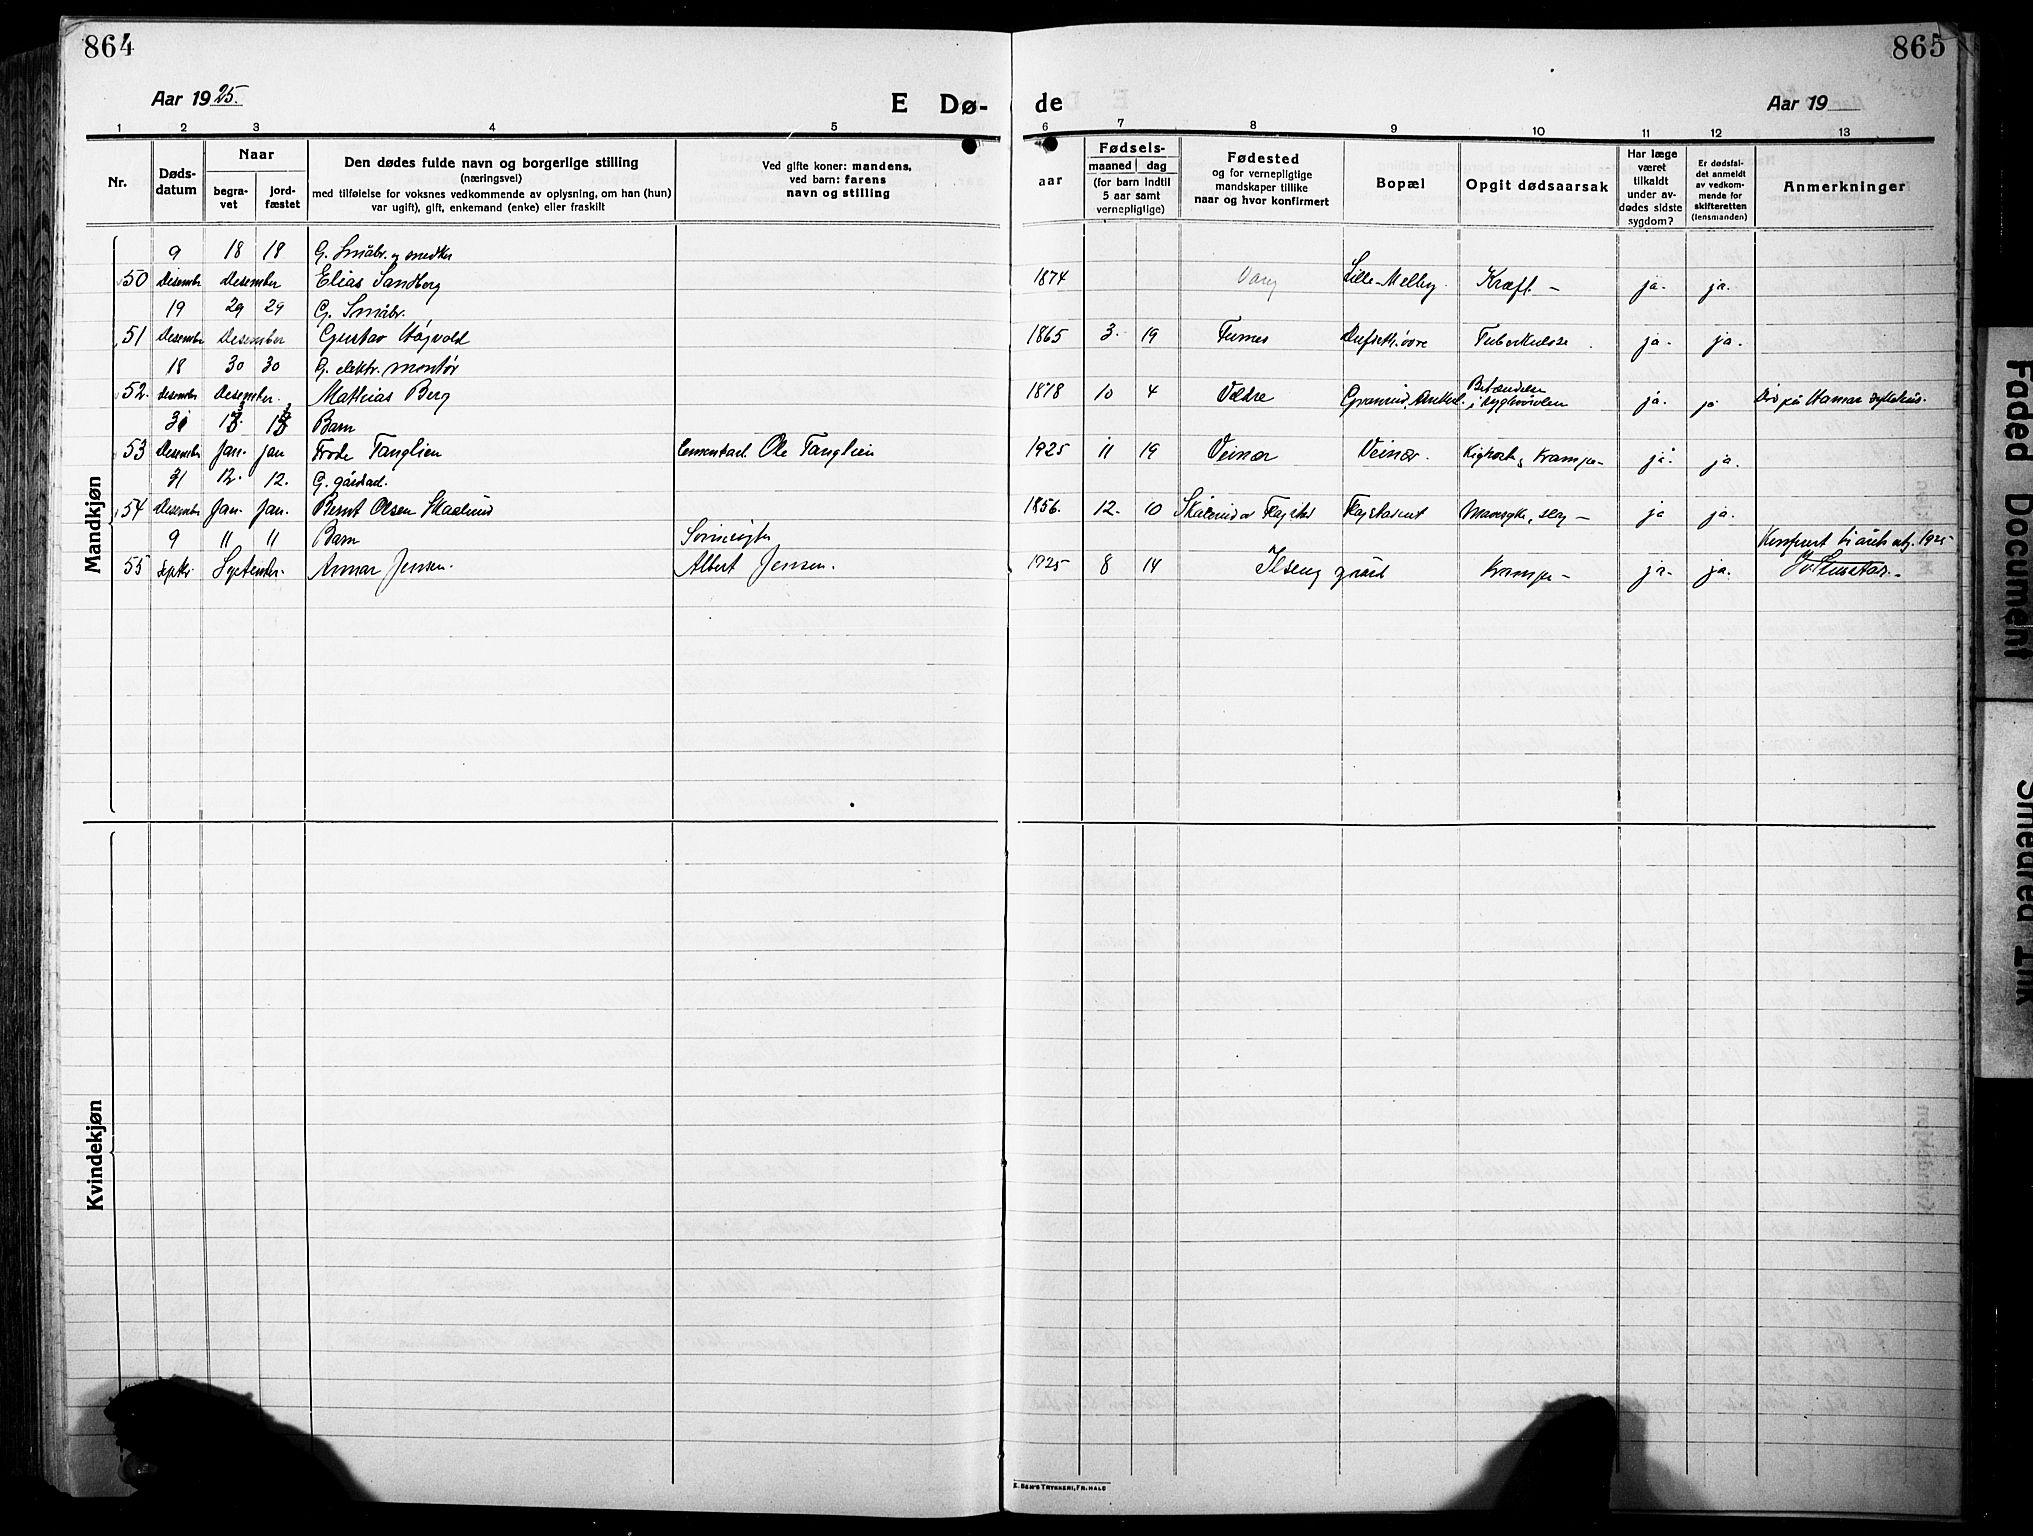 864
865
Aar 1925.
E Dø-
de
Aar 19
1 2 3 4 5 6 7 8 9 10 11 12 13
Nr.
Døds-
datum
Naar
begra-
vet
jord-
fæstet
Den dødes fulde navn og borgerlige stilling
(næringsvei)
med tilføielse for voksnes vedkommende av oplysning, om han (hun)
var ugift), gift, enkemand (enke) eller fraskilt
Ved gifte koner: mandens,
ved barn: farens
navn og stilling
aar
Fødsels-
maaned dag
(for barn indtil
5 aar samt
vernepligtige)
Fødested
og for vernepligtige
mandskaper tillike
naar og hvor konfirmert
Bopæl
Opgit dødsaarsak
Har læge
været
tilkaldt
under av-
dødes sidste
sygdom?
Er dødsfal-
det anmeldt
av vedkom-
mende for
skifteretten
(lensmanden)
Anmerkninger
Mandkjøn
9 18 18 G. Småbr. og snedker
50 Desember Desember Elias Sandberg 1874 Vang Lille-Melby. Kræft - ja. ja.
19 29 29 G. Småbr.
51 Desember Desember Gustav Høgvold 1865 3. 19 Furnes Tuberkulose ja. ja.
18 30 30 G. elektr. montør
52. Desember Desember. Mathias Berg 1878 10 4 Betændelse
i ja. ja Død på Hamar sykehus.
Barn
53 Desember Jan. Jan Frode Tanglien Ole Tanglien 1925 11 19 Veinær Veinær. Kighoste, Krampe- ja ja.
31 12. 12. G. gårdsad.
54 Desember Jan. Jan. Bernt Olsen Skaalrud 1856. 12. 10 ja ja.
9 11 11 Barn
55 Septbr. September. Annar Jensen. Albert Jensen. 1925 8 14 Ilseng gård Krampe- ja. ja.
Konferert 1925
Kvindekjøn
E. SEM'S TRYKKERI, FR.HALD
Faded Document
Smeared Ink